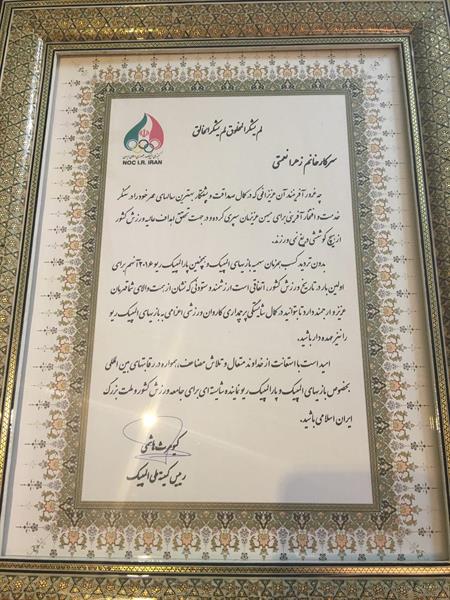 کمیته ملی المپیک جمهوری اسلامی ایران
NOC I.R. IRAN
لم یشکر المخلوق لم یشکر الخالق
سرکار خانم زهرا نعمتی
چه غرور آفرینند آن عزیزانی که در کمال صداقت و پشتکار بهترین سالهای عمر خود را در سنگر
خدمت و افتخار آفرینی برای میهن عزیزمان سپری کرده و در جهت تحقق اهداف عالیه ورزش کشور
از هیچ کوششی دریغ نمی ورزند.
بدون تردید کسب همزمان سهمیه بازیهای المپیک و همچنین پارالمپیک ریو ۲۰۱۶ آنهم برای
اولین بار در تاریخ ورزش کشور، اتفاقی است ارزشمند و ستودنی که نشان از همت والای شما قهرمان
عزیز و ارجمند دارد تا بتوانید در کمال شایستگی پرچمداری کاروان ورزشی اعزامی به بازیهای المپیک ریو
را نیز عهده دار باشید.
امید است با استعانت از خداوند متعال و تلاش مضاعف، همواره در رقابتهای بین المللی
بخصوص بازیهای المپیک و پارالمپیک ریو نماینده شایسته ای برای جامعه ورزش کشور و ملت بزرگ
ایران اسلامی باشید.
کیومرث هاشمی
رییس کمیته ملی المپیک